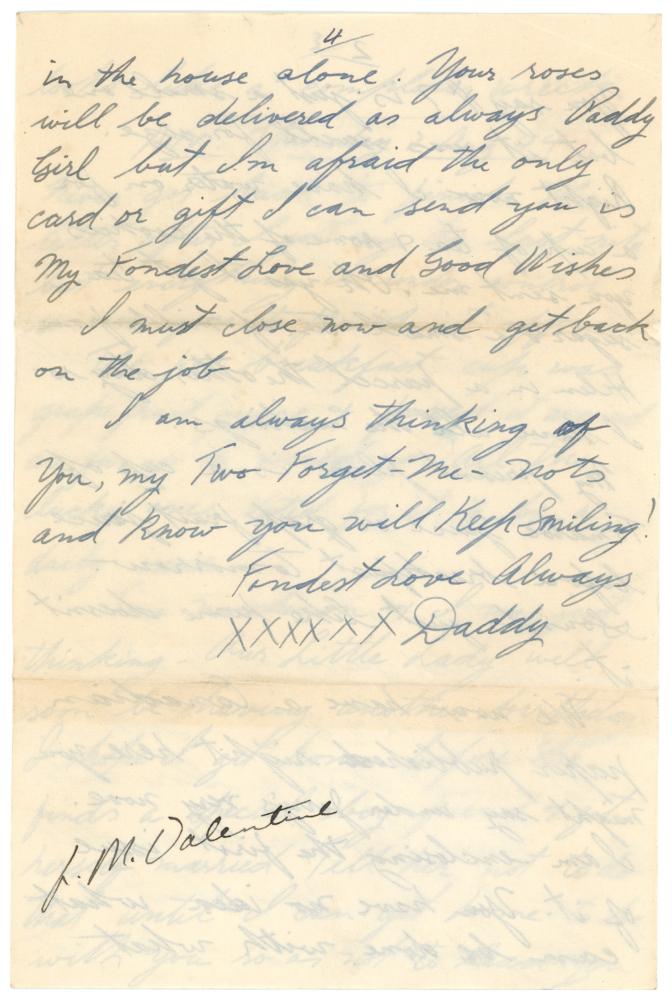 4
in the house alone. Your roses
will be delivered as always Paddy
Girl but I'm afraid the only
card or gift I can send you is
My Fondest Love and Good Wishes
I must close now and get back
on the job
I am always thinking of
You, my Two Forget-Me-nots
and know you will Keep Smiling!
Fondest Love Always
XXXXXX Daddy
L. M. Valentine